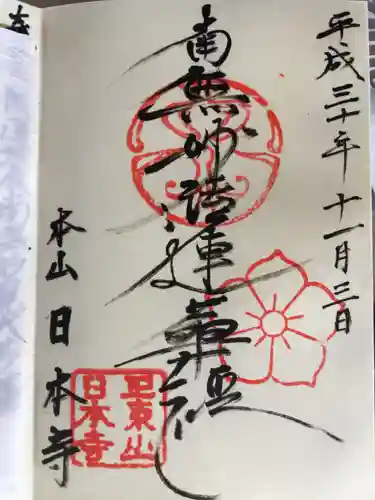 平成三十年十一月三日
南無妙法蓮華経
本山 日本寺
正東山
日本寺